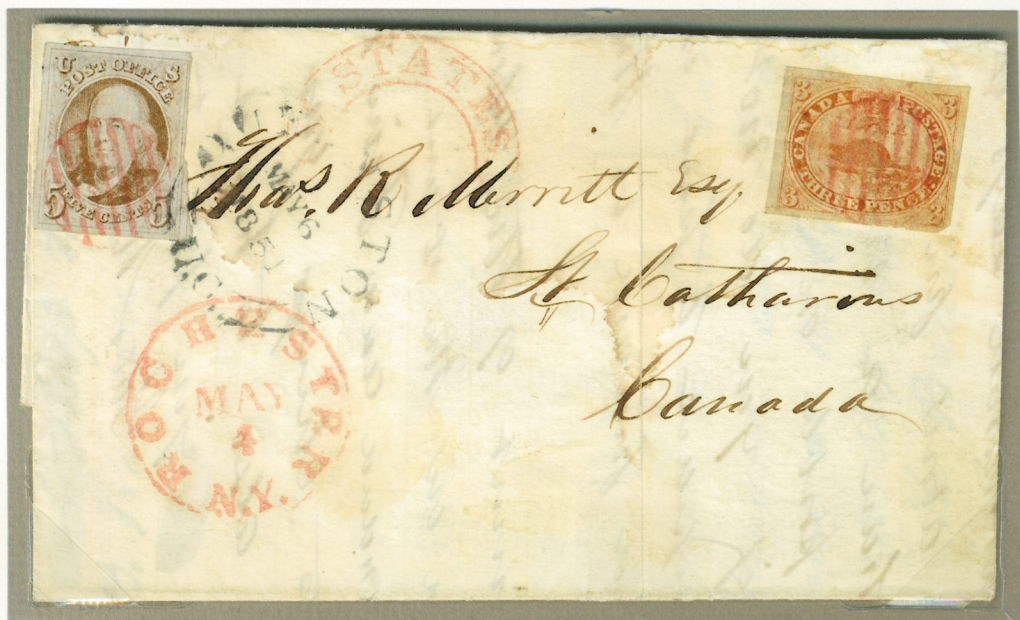 U S
POST OFFICE
5 FIVE CENTS 5
STATES
3 CANADA POSTAGE 3
3 THREE PENCE 3
Thos. R Merritt Esq
St. Catharines
Canada
MAY 6
185
TON
ROCHESTER
MAY
4
N.Y.